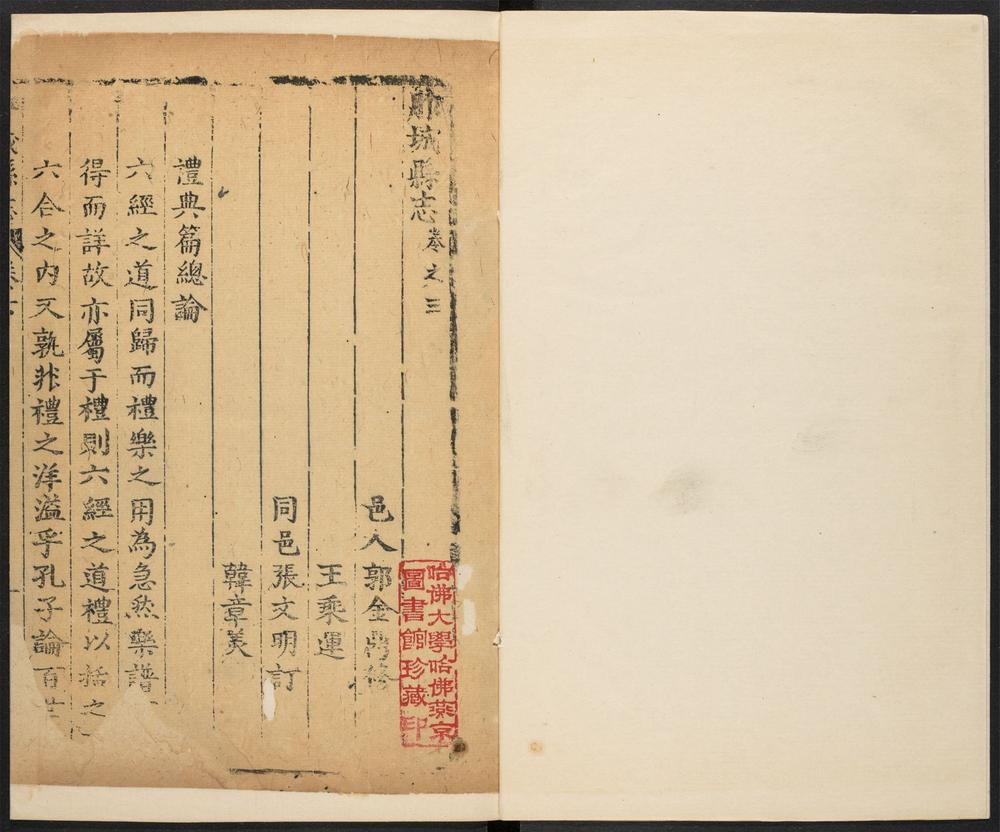 城縣志 卷之三
邑人郭金
王乘運
同邑張文明訂
韓章美
禮典篇總論
六經之道同歸而禮樂之用為急然樂譜
得而詳故亦屬于禮則六經之道禮以括之
六合之內又孰非禮之洋溢乎孔子論百
哈佛大學哈佛燕京
圖書館珍藏印